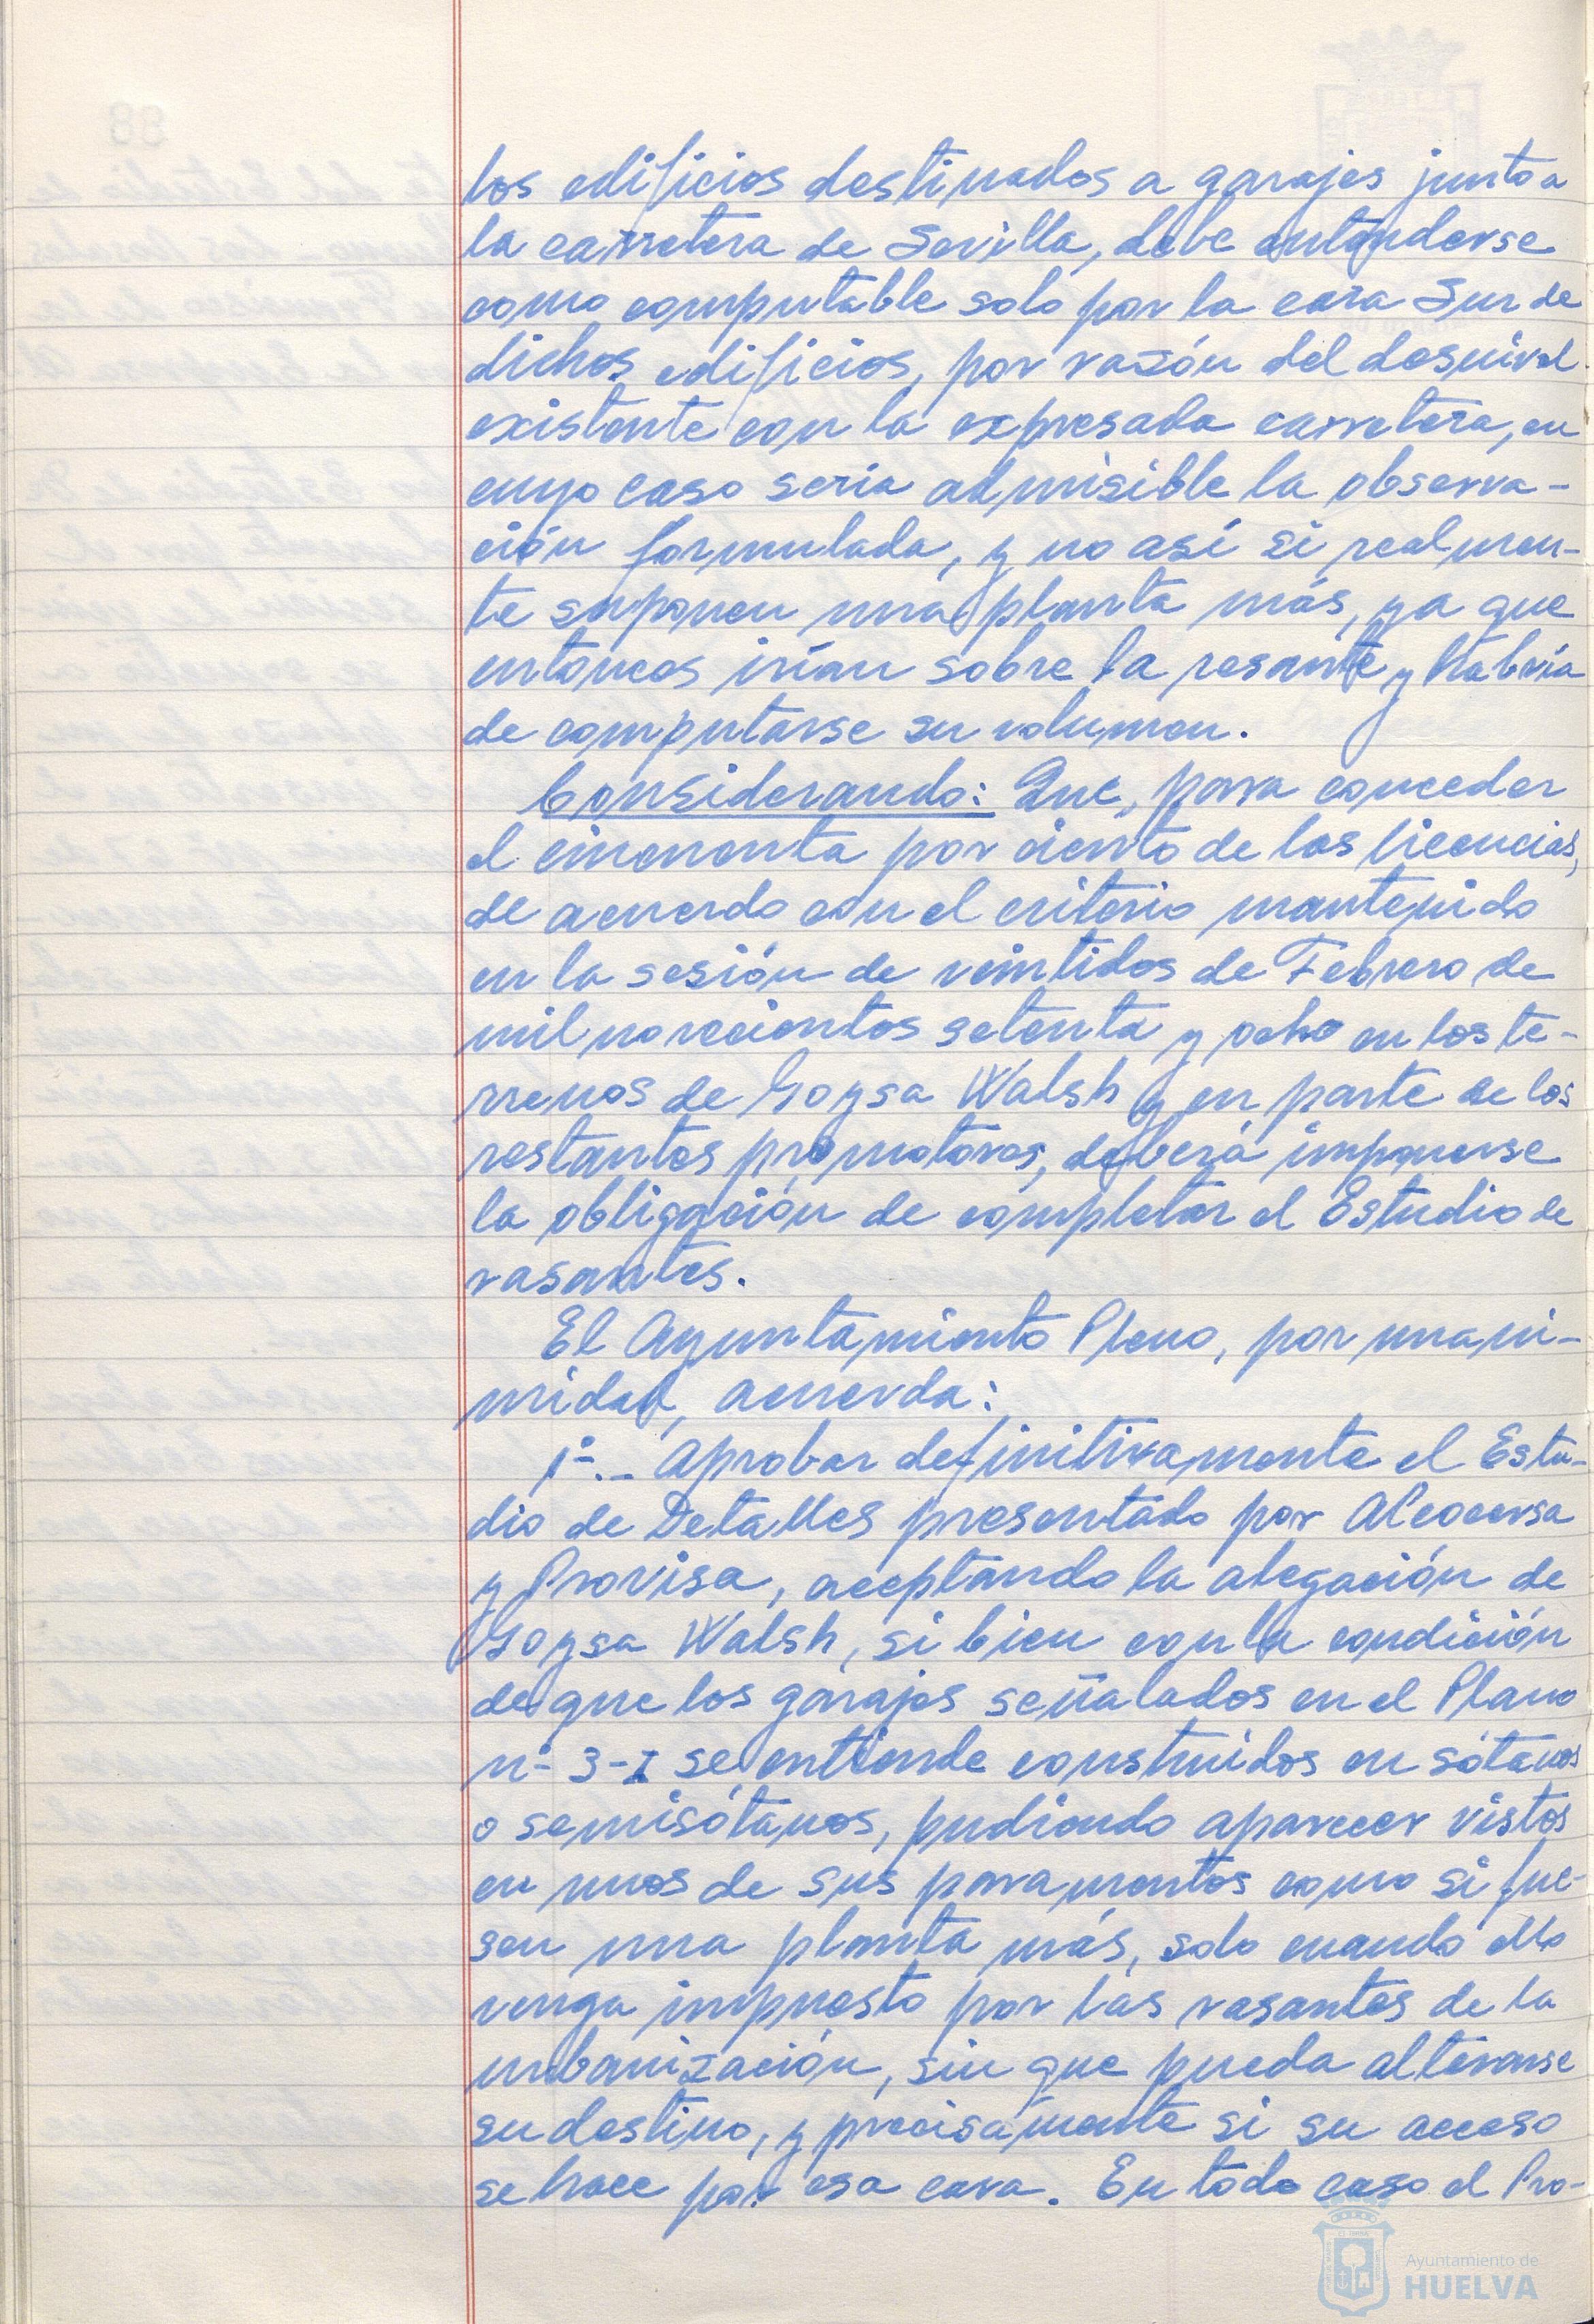 los edificios destinados a garajes junto a
la carretera de Sevilla, debe entenderse
como computable solo por la cara Sur de
dichos edificios, por razón del desnivel
existente con la expresada carretera, en
cuyo caso sería admisible la observa-
ción formulada, y no así si realmen-
te suponen una planta más, ya que
entonces irían sobre la rasante y habría
de computarse su volumen.
Considerando: Que, para conceder
el cincuenta por ciento de las licencias,
de acuerdo con el criterio mantenido
en la sesión de veintidos de Febrero de
mil novecientos setenta y ocho en los te-
rrenos de Goysa Walsh y en parte de los
restantes promotores, deberá imponerse
la obligación de completar el Estudio de
rasantes.
El Ayuntamiento Pleno, por unani-
midad, acuerda:
1º.- Aprobar definitivamente el Estu-
dio de Detalles presentado por Alcocersa
y Provisa, aceptando la alegación de
Goysa Walsh, si bien con la condición
de que los garajes señalados en el Plano
nº 3-I se entiende construidos en sótanos
o semisótanos, pudiendo aparecer vistos
en unos de sus paramentos como si fue-
sen una planta más, solo cuando ello
venga impuesto por las rasantes de la
urbanización, sin que pueda alterarse
su destino, y precisamente si su acceso
se hace por esa cara. En todo caso el Pro-
Ayuntamiento de
HUELVA